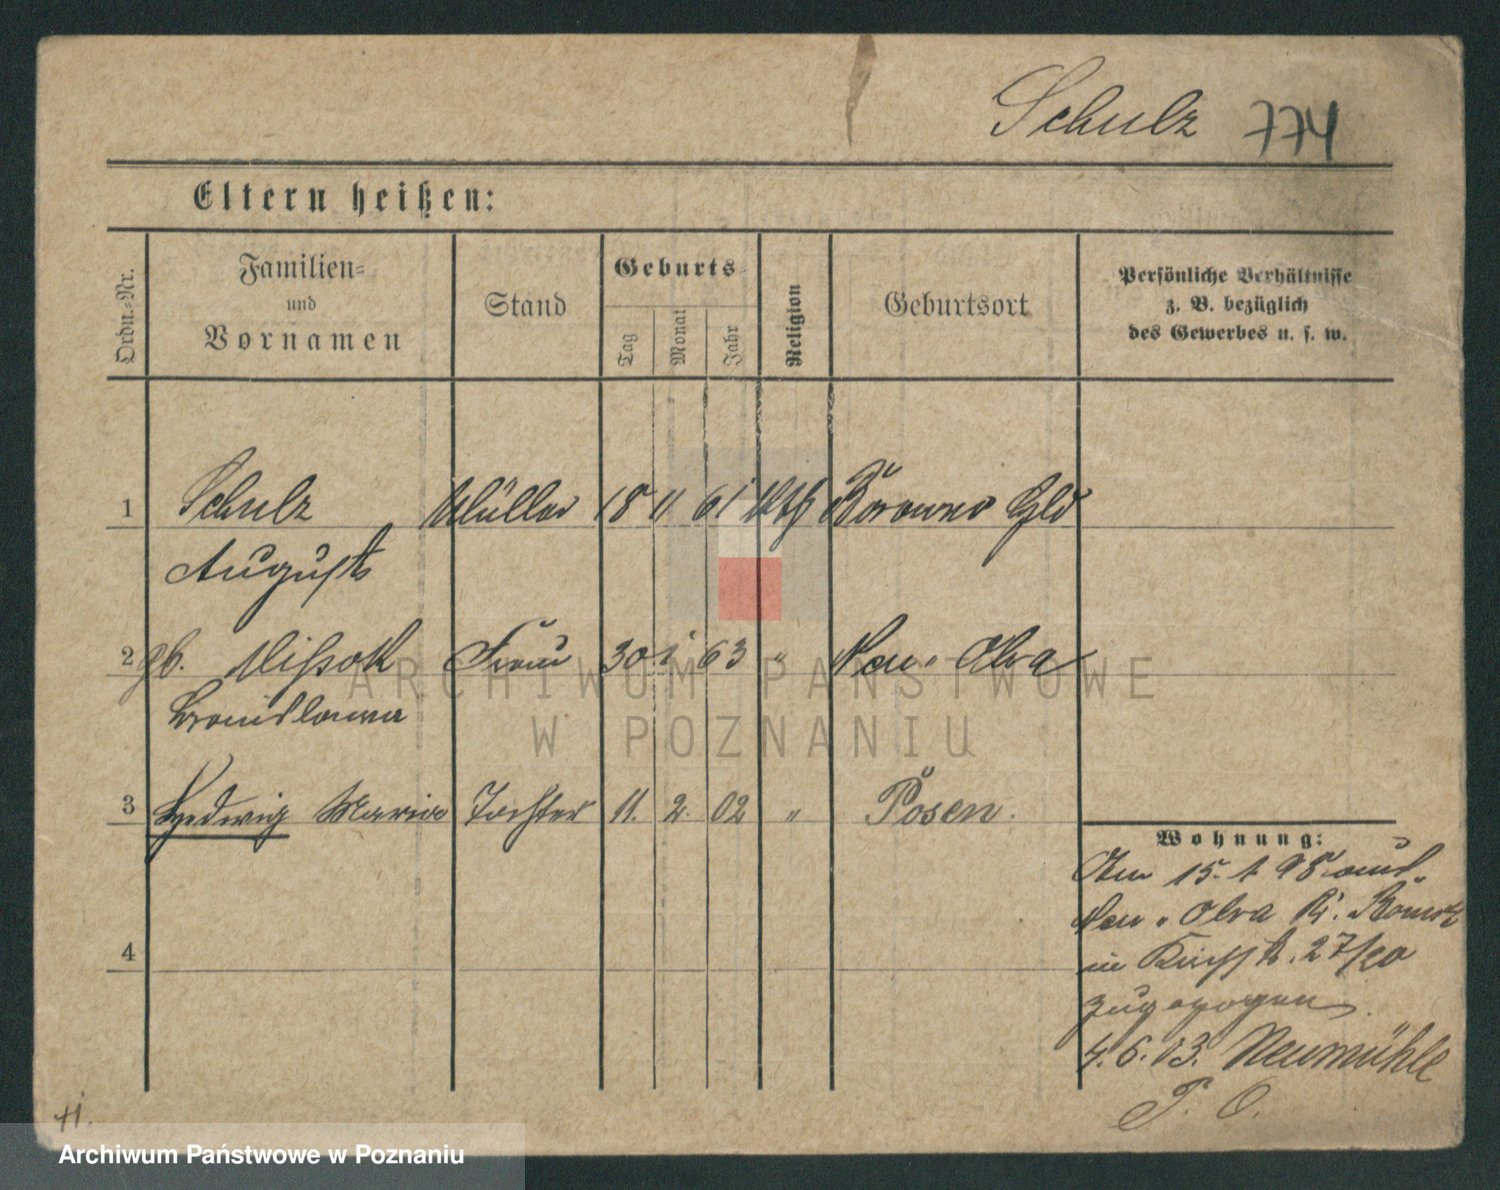 Schulz 774
Eltern heißen:
Ordn.-Nr.
Familien-
und
Vornamen
Stand
Geburts-
Tag
Monat
Jahr
Religion
Geburtsort
Persönliche Verhältnisse
z. B. bezüglich
des Gewerbes u. s. w.
1 Schulz Müller 18 11 61 kth
August
2 gb. Frau 30 1 63 " Neu-Olva
Bronislawa
3 Hedwig Maria Tochter 11. 2. 02 " Posen.
4
Wohnung:
Am 15. 1. 98 aus
Neu-Olva
in 27/20
zugezogen
4. 6. 03. Neumühle
P. O.
ARCHIWUM PAŃSTWOWE
W POZNANIU
Archiwum Państwowe w Poznaniu